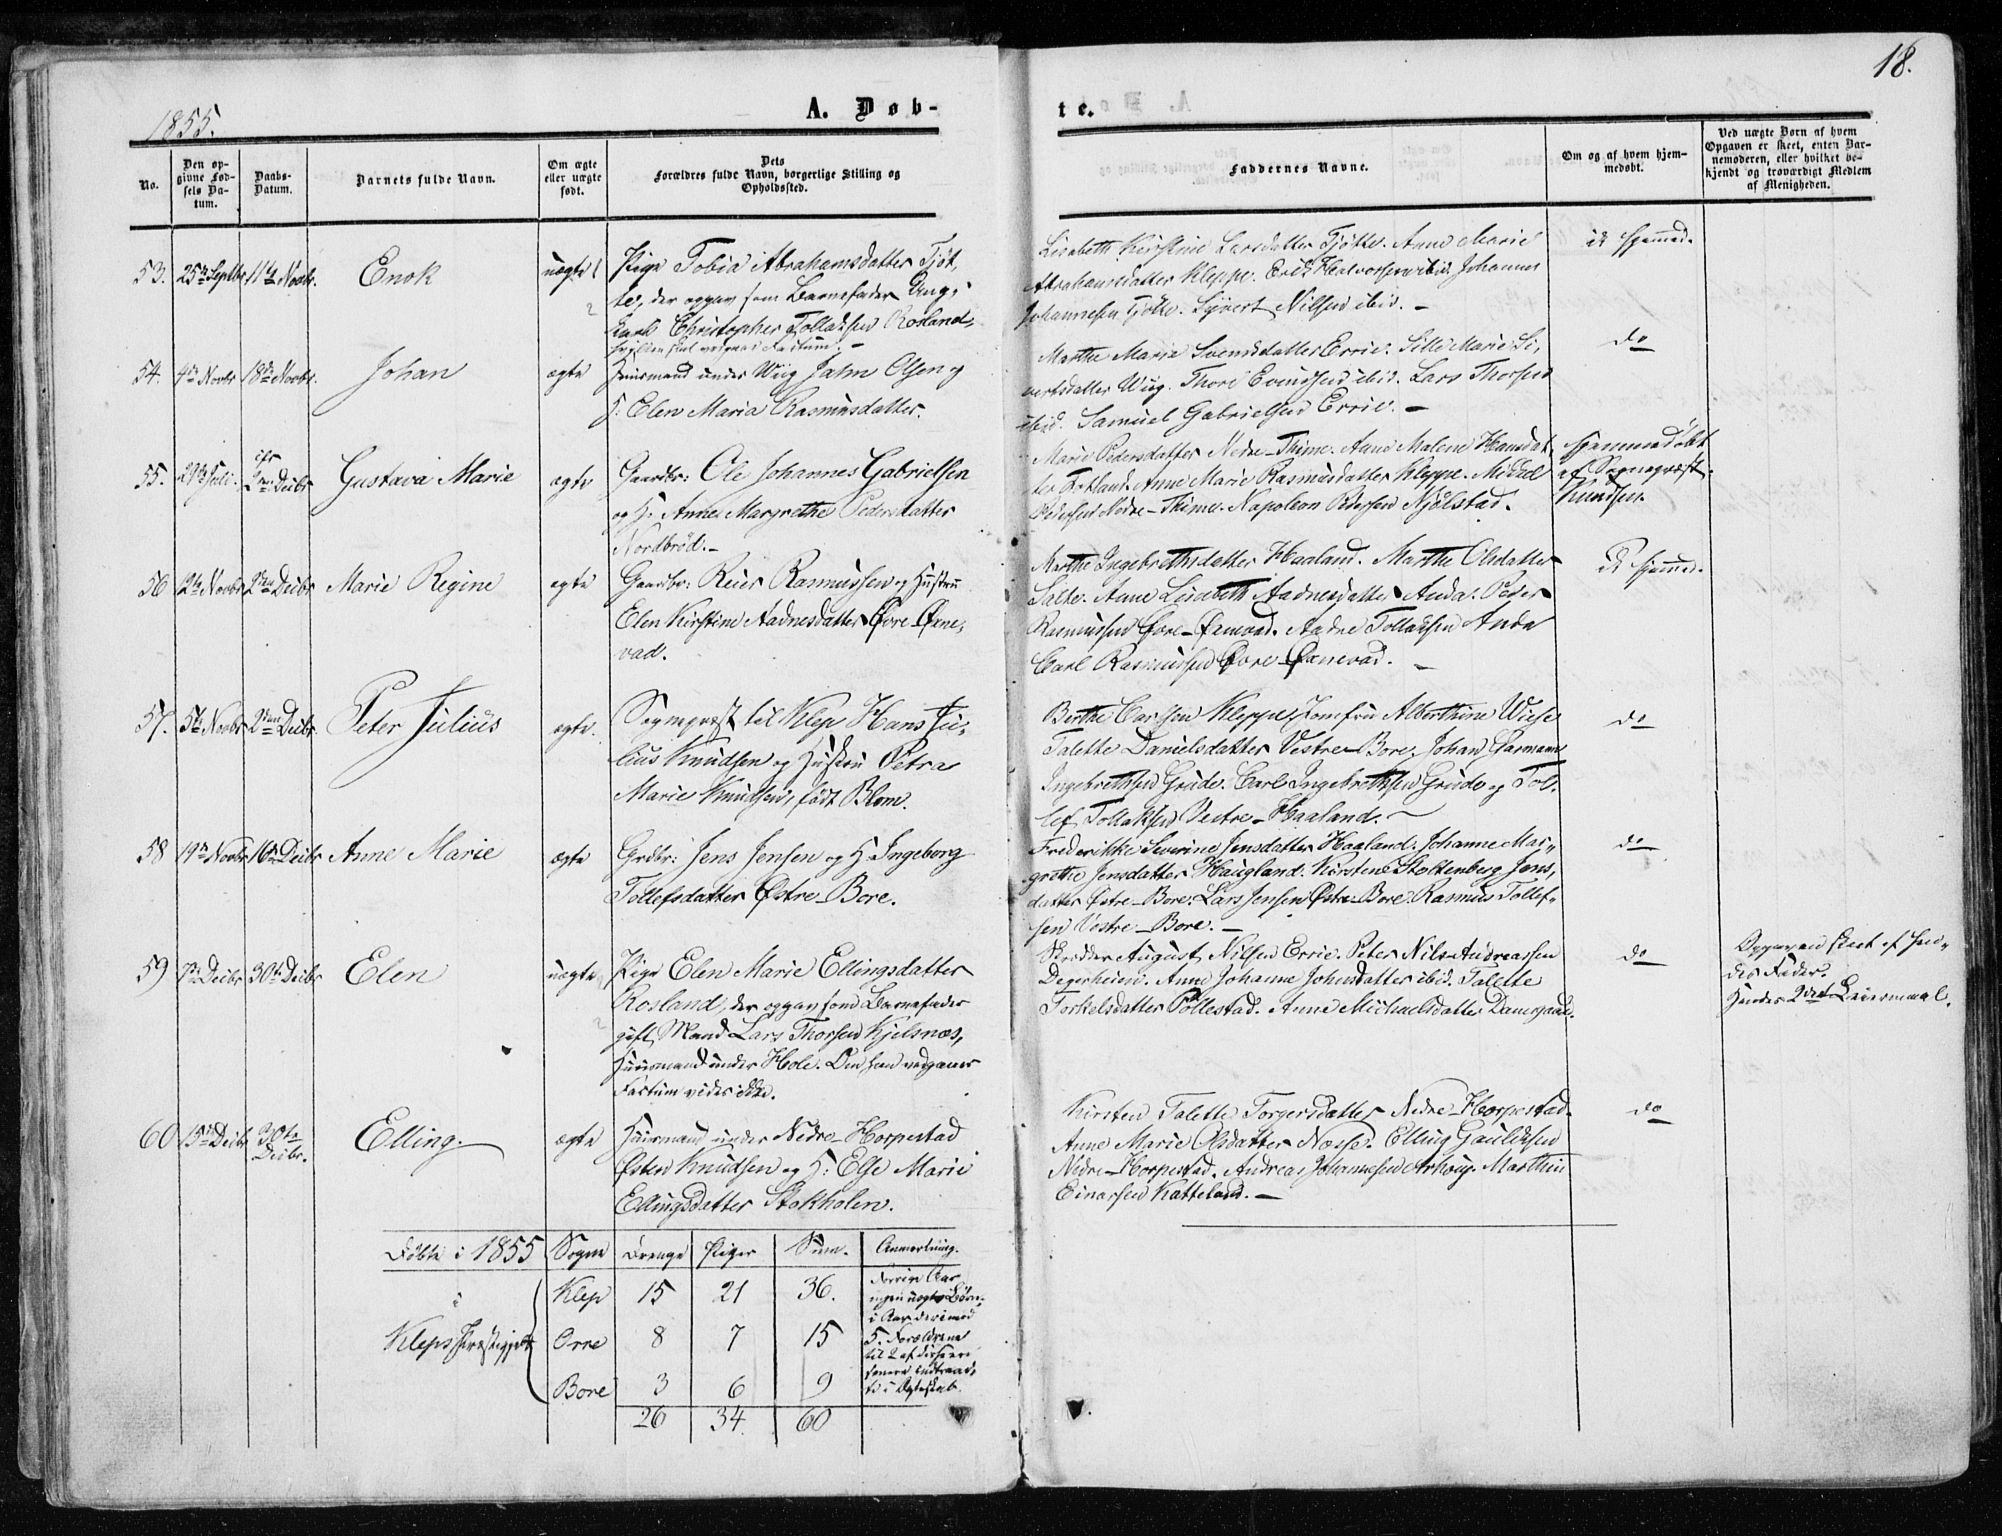 18.
1855.
A. Døb-
te.
No.
Den op-
givne Fød-
sels Da-
tum.
Daabs-
Datum.
Barnets fulde Navn.
Om ægte
eller uægte
født.
Dets
Forældres fulde Navn, borgerlige Stilling og
Opholdssted.
Faddernes Navne.
Om og af hvem hjem-
medøbt.
Ved uægte Børn af hvem
Opgaven er skeet, enten Bar-
nemoderen, eller hvilket be-
kjendt og troværdigt Medlem
af Menigheden.
53. 25de Septbr 11te Novbr. Enok uægte
Pige Tobia Abrahamsdatter Tjøt,
te, der opgav som Barnefader Ung,
karl Christopher Tollaksen Rosland,
Factum. –
Lisabeth Kirstine Larsdatter Tjøtte. Anne Marie
Abrahamsdatter Kleppe. Erik Halvorsen ibid. Johannes
Johannesen Tjøtte. Syvert Nilsen ibid. –
ei hjemmed.
54. 4de Novbr 18de Novbr. Johan ægte
Huusmand under Wiig Jahn Olsen og
H: Elen Maria Rasmusdatter.
Marthe Marie Svensdatter Errie. Sille Marie Si,
vertsdatter Wiig. Thore Evindsen ibid. Lars Thorsen
ibid. Samuel Gabrielsen Errie. –
do
55. 29de Juli. 2den Decbr Gustava Marie ægte
Gaardbr: Ole Johannes Gabrielsen
og H: Anne Margrethe Pedersdatter
Nordbrød. –
Marie Petersdatter Nedre-Thime. Anne Malene Hansdat,
ter Anne Marie Rasmusdatter Kleppe. Mikkel
Pedersen Nedre-Thime. Napoleon Petersen Njølstad.
Hjemmedøbt
af Sognepræst
Knudsen.
56 12te Novbr 2den Decbr Marie Regine ægte
Gaardbr: Reier Rasmussen og Hustru
Elen Kirstine Aadnesdatter Øvre-Øxne,
vad.
Marthe Ingebrethsdatter Haaland. Marthe Olsdatter
Salte. Anne Lisabeth Aadnesdatter Anda. Peder
Rasmussen Øvre-Øxnevad. Aadne Tollaksen Anda
Carl Rasmussen Øvre-Øxnevad. –
Ei hjemmed.
57. 5te Novbr 2den Decbr. Peter Julius ægte.
Sognepræst til Klep Hans Ju,
lius Knudsen og Hustru Petra
Marie Knudsen, født Blom.
Berthe Carlsen Kleppe, Jomfru Alberthine Wiese
Talette Danielsdatter Vestre-Bore. Johan Garmann
Ingebrethsen Grude. Carl Ingebrethsen Grude og Tol,
lef Tollaksen Vestre-Haaland.
do
58 19de Novbr 16de Decbr Anne Marie ægte
Grdbr: Jens Jensen og H. Ingeborg
Tollefsdatter Østre-Bore.
Frederikke Severine Jensdatter Haaland. Johanne Mar,
grethe Jensdatter Haugland. Kirstene Stoltenberg Jens,
datter Østre-Bore. Lars Jensen Østre-Bore. Rasmus Tollef,
sen Vestre-Bore. –
do
59 7de Decbr 30te Decbr Elen uægte
Pige Elen Marie Ellingsdatter
Rosland, der opgav som Barnefader
gift Mand Lars Thorsen Kjelsnæs,
Huusmand under Hole. Om han vedgaaer
Factum vides ikke.
Skrædder August Nilsen Errie. Peter Nils Andreassen
Degerheien. Anne Johanne Johnsdatter ibid. Talette
Torkelsdatter Pollestad. Anne Michaelsdatter
do
Opgaven skeet af hen,
des Fader.
Hendes 2det Leiermaal.
60 15de Decbr 30te
Decbr. Elling. ægte
Huusmand under Nedre-Horpestad
Østen Knudsen og H: Else Marie
Ellingsdatter Stokholen.
Kirsten Talette Torgersdatter Nedre-Horpestad.
Anne Marie Olsdatter Næsse. Elling
Nedre-Horpestad. Andreas Johannesen Marthin
Einarsen Katteland. –
do
Døbte i 1855 Sogne Drenge Piger Sum. Anmærkning.
i
Kleps Præstegjeld
Klep 15 21 36.
Orre 8 7 15
Bore 3 6 9
26 34 60
Forrige Aar
ingen uægte Børn,
i Aar derimod
5. Forældrene
til 2 af disse ere
senere indtraad,
te i Ægteskab.